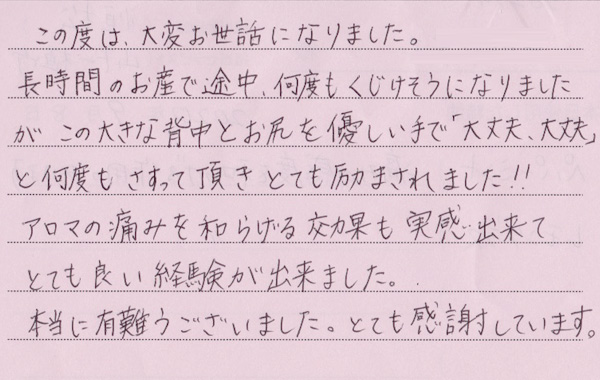 この度は、大変お世話になりました。
長時間のお産で途中、何度もくじけそうになりました
が この大きな背中とお尻を優しい手で「大丈夫、大丈夫」
と何度もさすって頂きとても励まされました!!
アロマの痛みを和らげる効果も実感出来て
とても良い経験が出来ました。
本当に有難うございました。とても感謝しています。